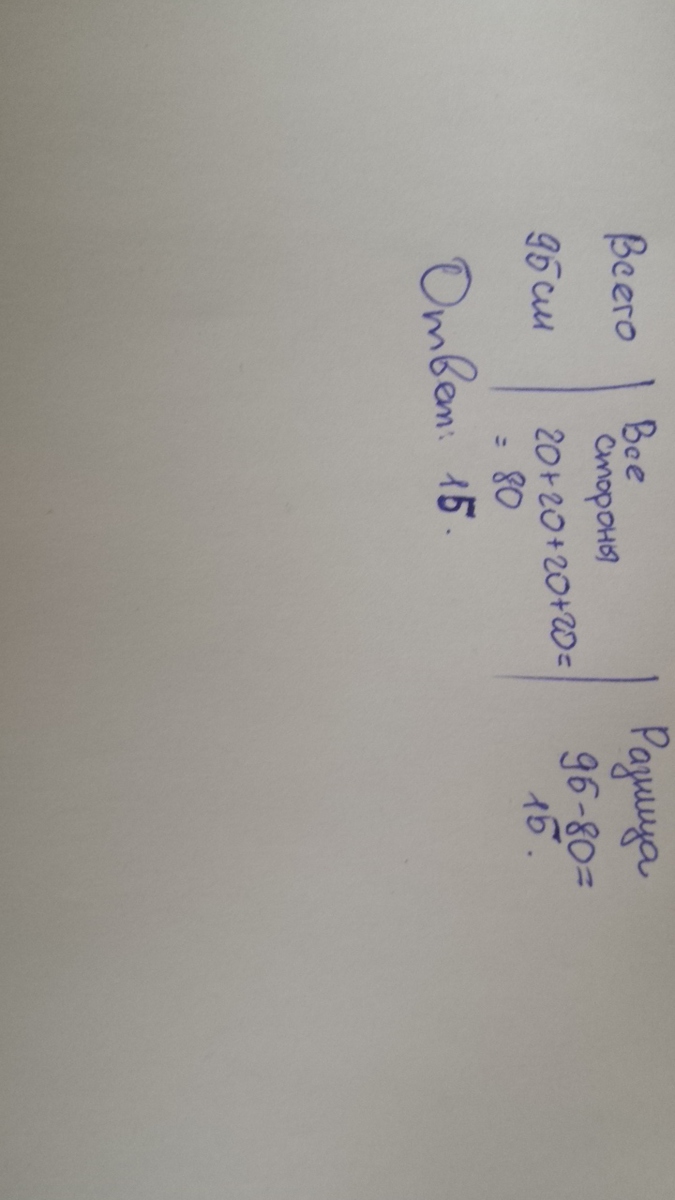 Всего | Все стороны | Разница
95 см | 20+20+20+20= | 95-80=
= 80 15.
Ответ: 15.